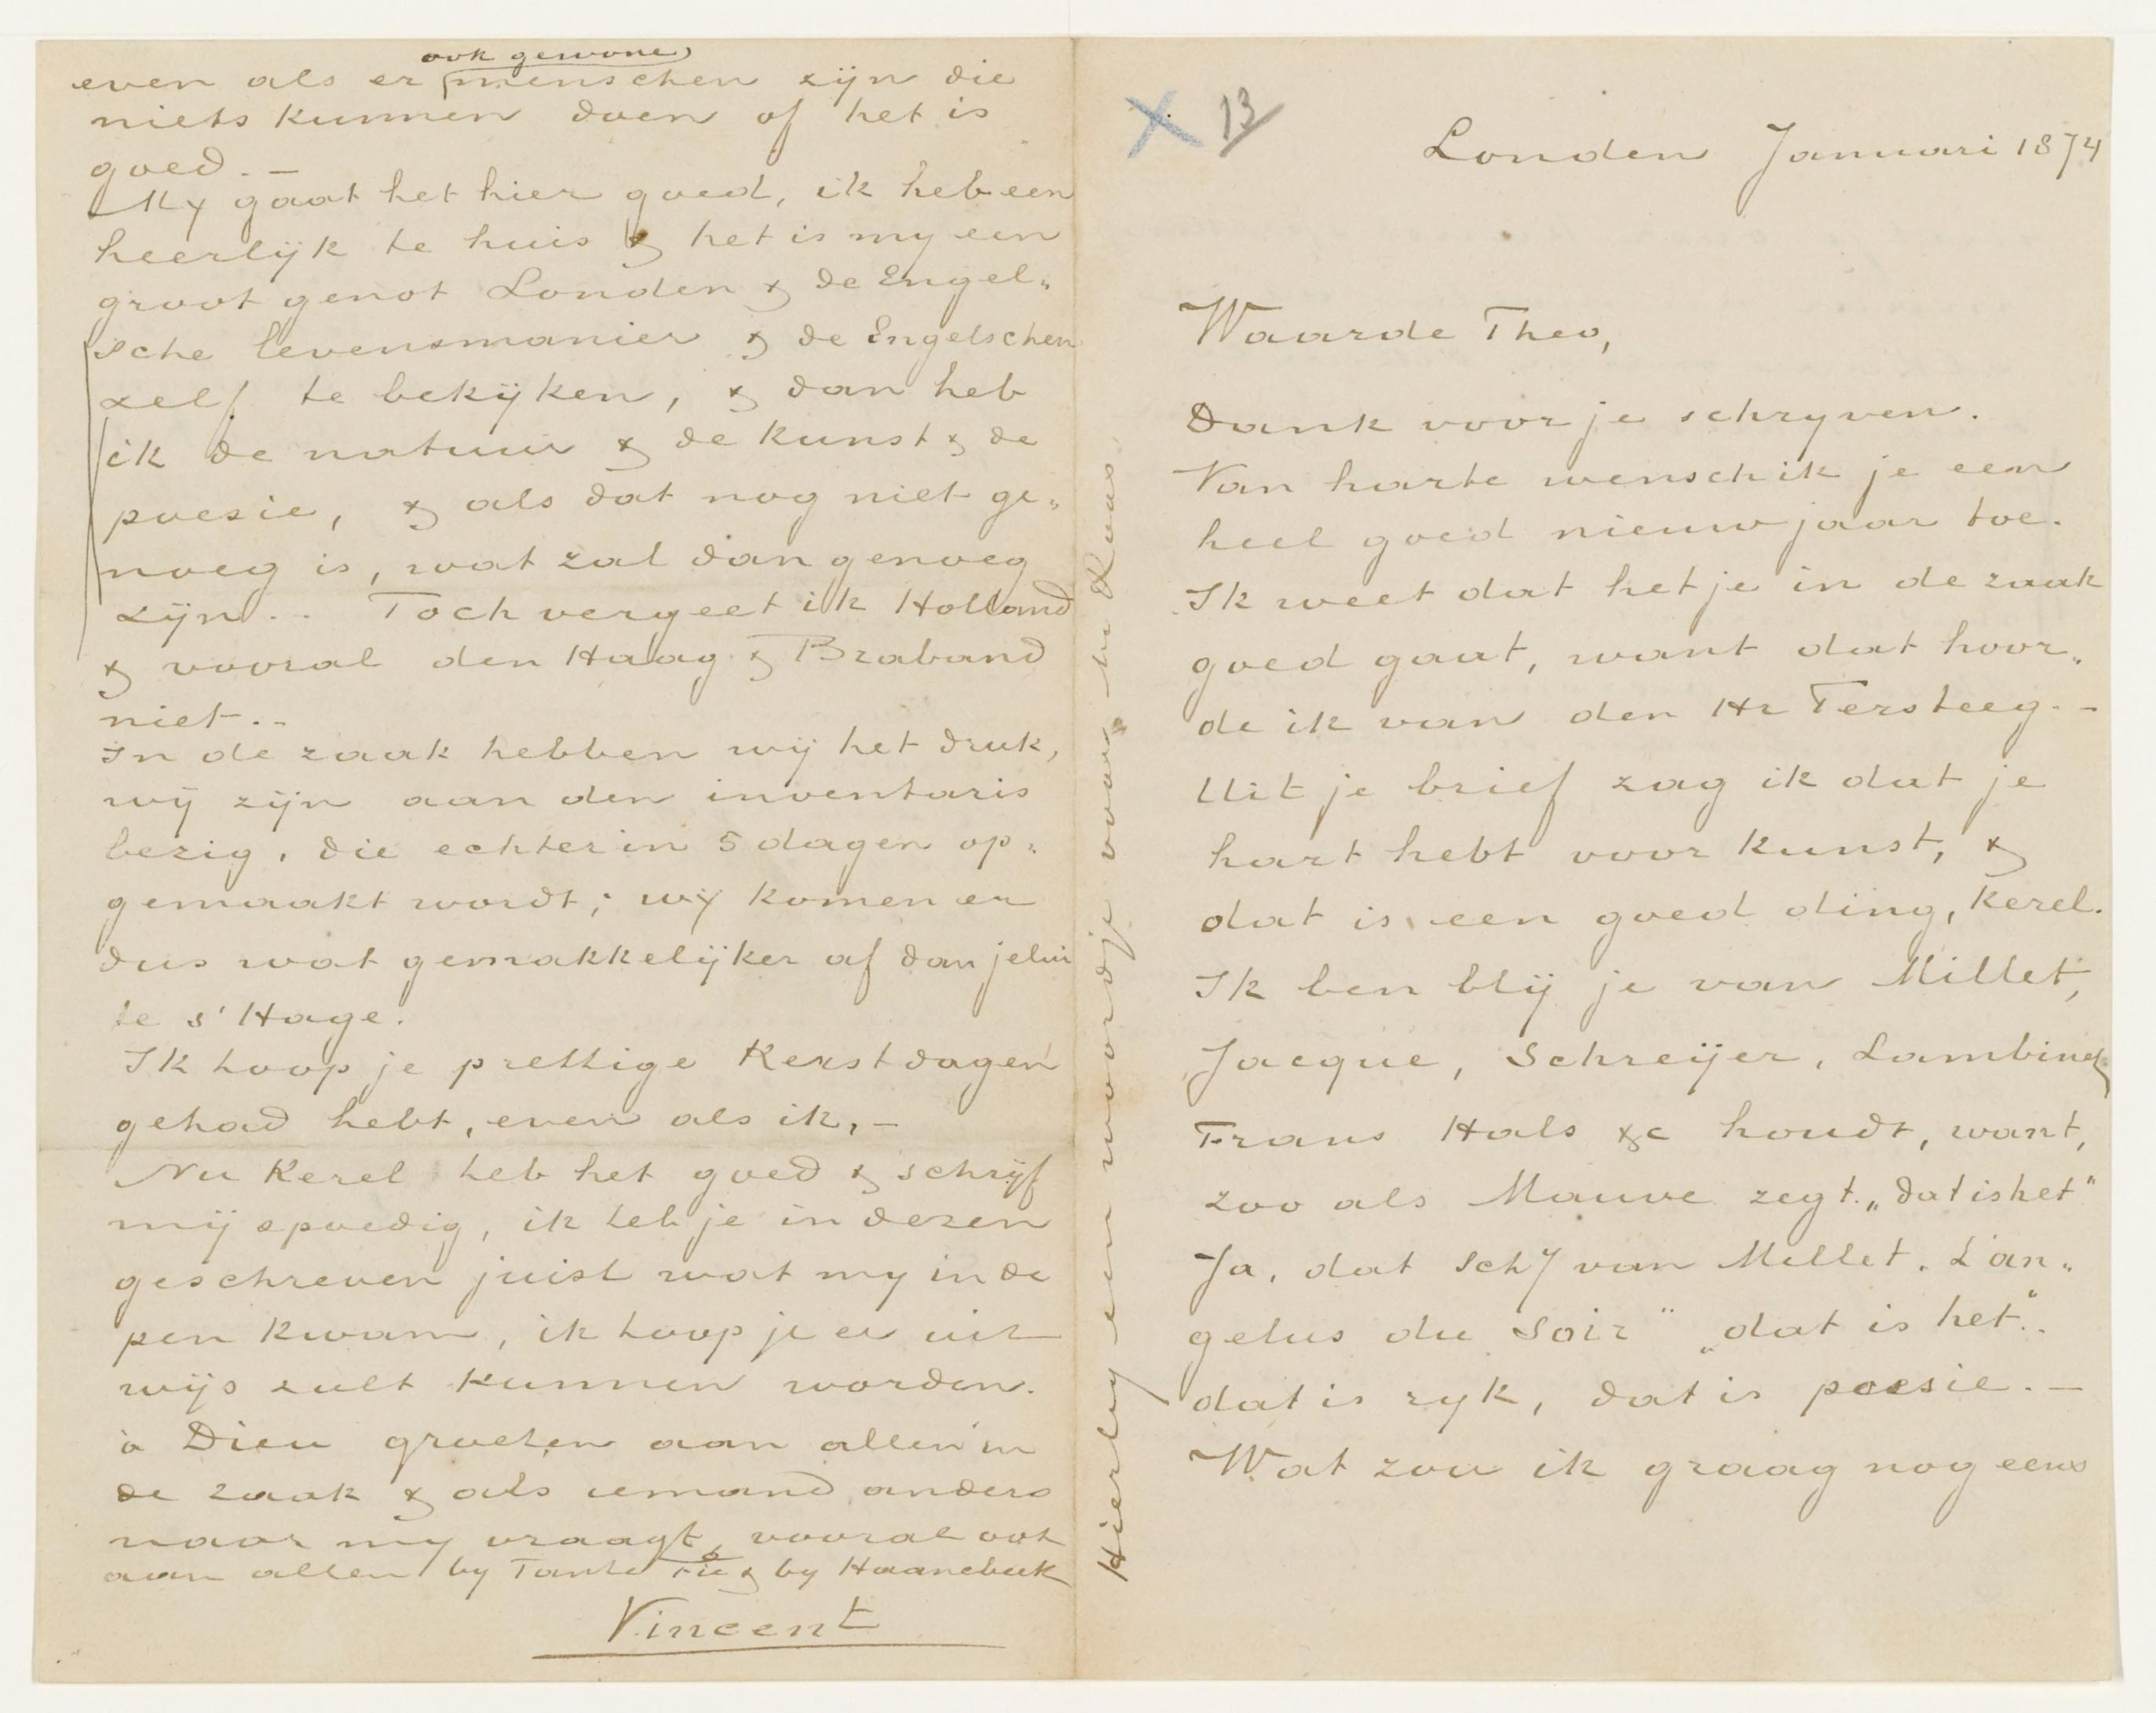 X 13
Londen Januari 1874
Waarde Theo,
Dank voor je schryven.
Van harte wensch ik je een
heel goed nieuwjaar toe.
Ik weet dat het je in de zaak
goed gaat, want dat hoor„
de ik van den Hr Tersteeg. –
Uit je brief zag ik dat je
hart hebt voor kunst, &
dat is een goed ding, kerel.
Ik ben blij je van Millet,
Jacque, Schreijer, Lambinet,
Frans Hals &c houdt, want,
zoo als Mauve zegt. „dat is het”
Ja, dat schij van Millet. L'an„
gelus du soir” „dat is het”..
dat is ryk, dat is poesie. –
Wat zou ik graag nog eens
Hierby een woordje voor M Roos
even als er ook gewone menschen zijn die
niets kunnen doen of het is
goed. –
My gaat het hier goed, ik heb een
heerlijk te huis & het is my een
groot genot Londen & de Engel„
sche levensmanier & de Engelschen
zelf te bekijken, & dan heb
ik de natuur & de kunst & de
poesie, & als dat nog niet ge„
noeg is, wat zal dan genoeg
zijn.. Toch vergeet ik Holland
& vooral den Haag & Braband
niet..
In de zaak hebben wij het druk,
wij zijn aan den inventaris
bezig, die echter in 5 dagen op„
gemaakt wordt; wij komen er
dus wat gemakkelijker af dan jelui
te s' Hage.
Ik hoop je prettige Kerstdagen
gehad hebt, even als ik, –
Nu Kerel heb het goed & schrijf
mij spoedig, ik heb je in dezen
geschreven juist wat my in de
pen kwam, ik hoop je er uit
wijs zult kunnen worden.
à Dieu groeten aan allen in
de zaak & als iemand anders
naar my vraagt, vooral ook
aan allen by Tante Fie & by Haanebeek
Vincent